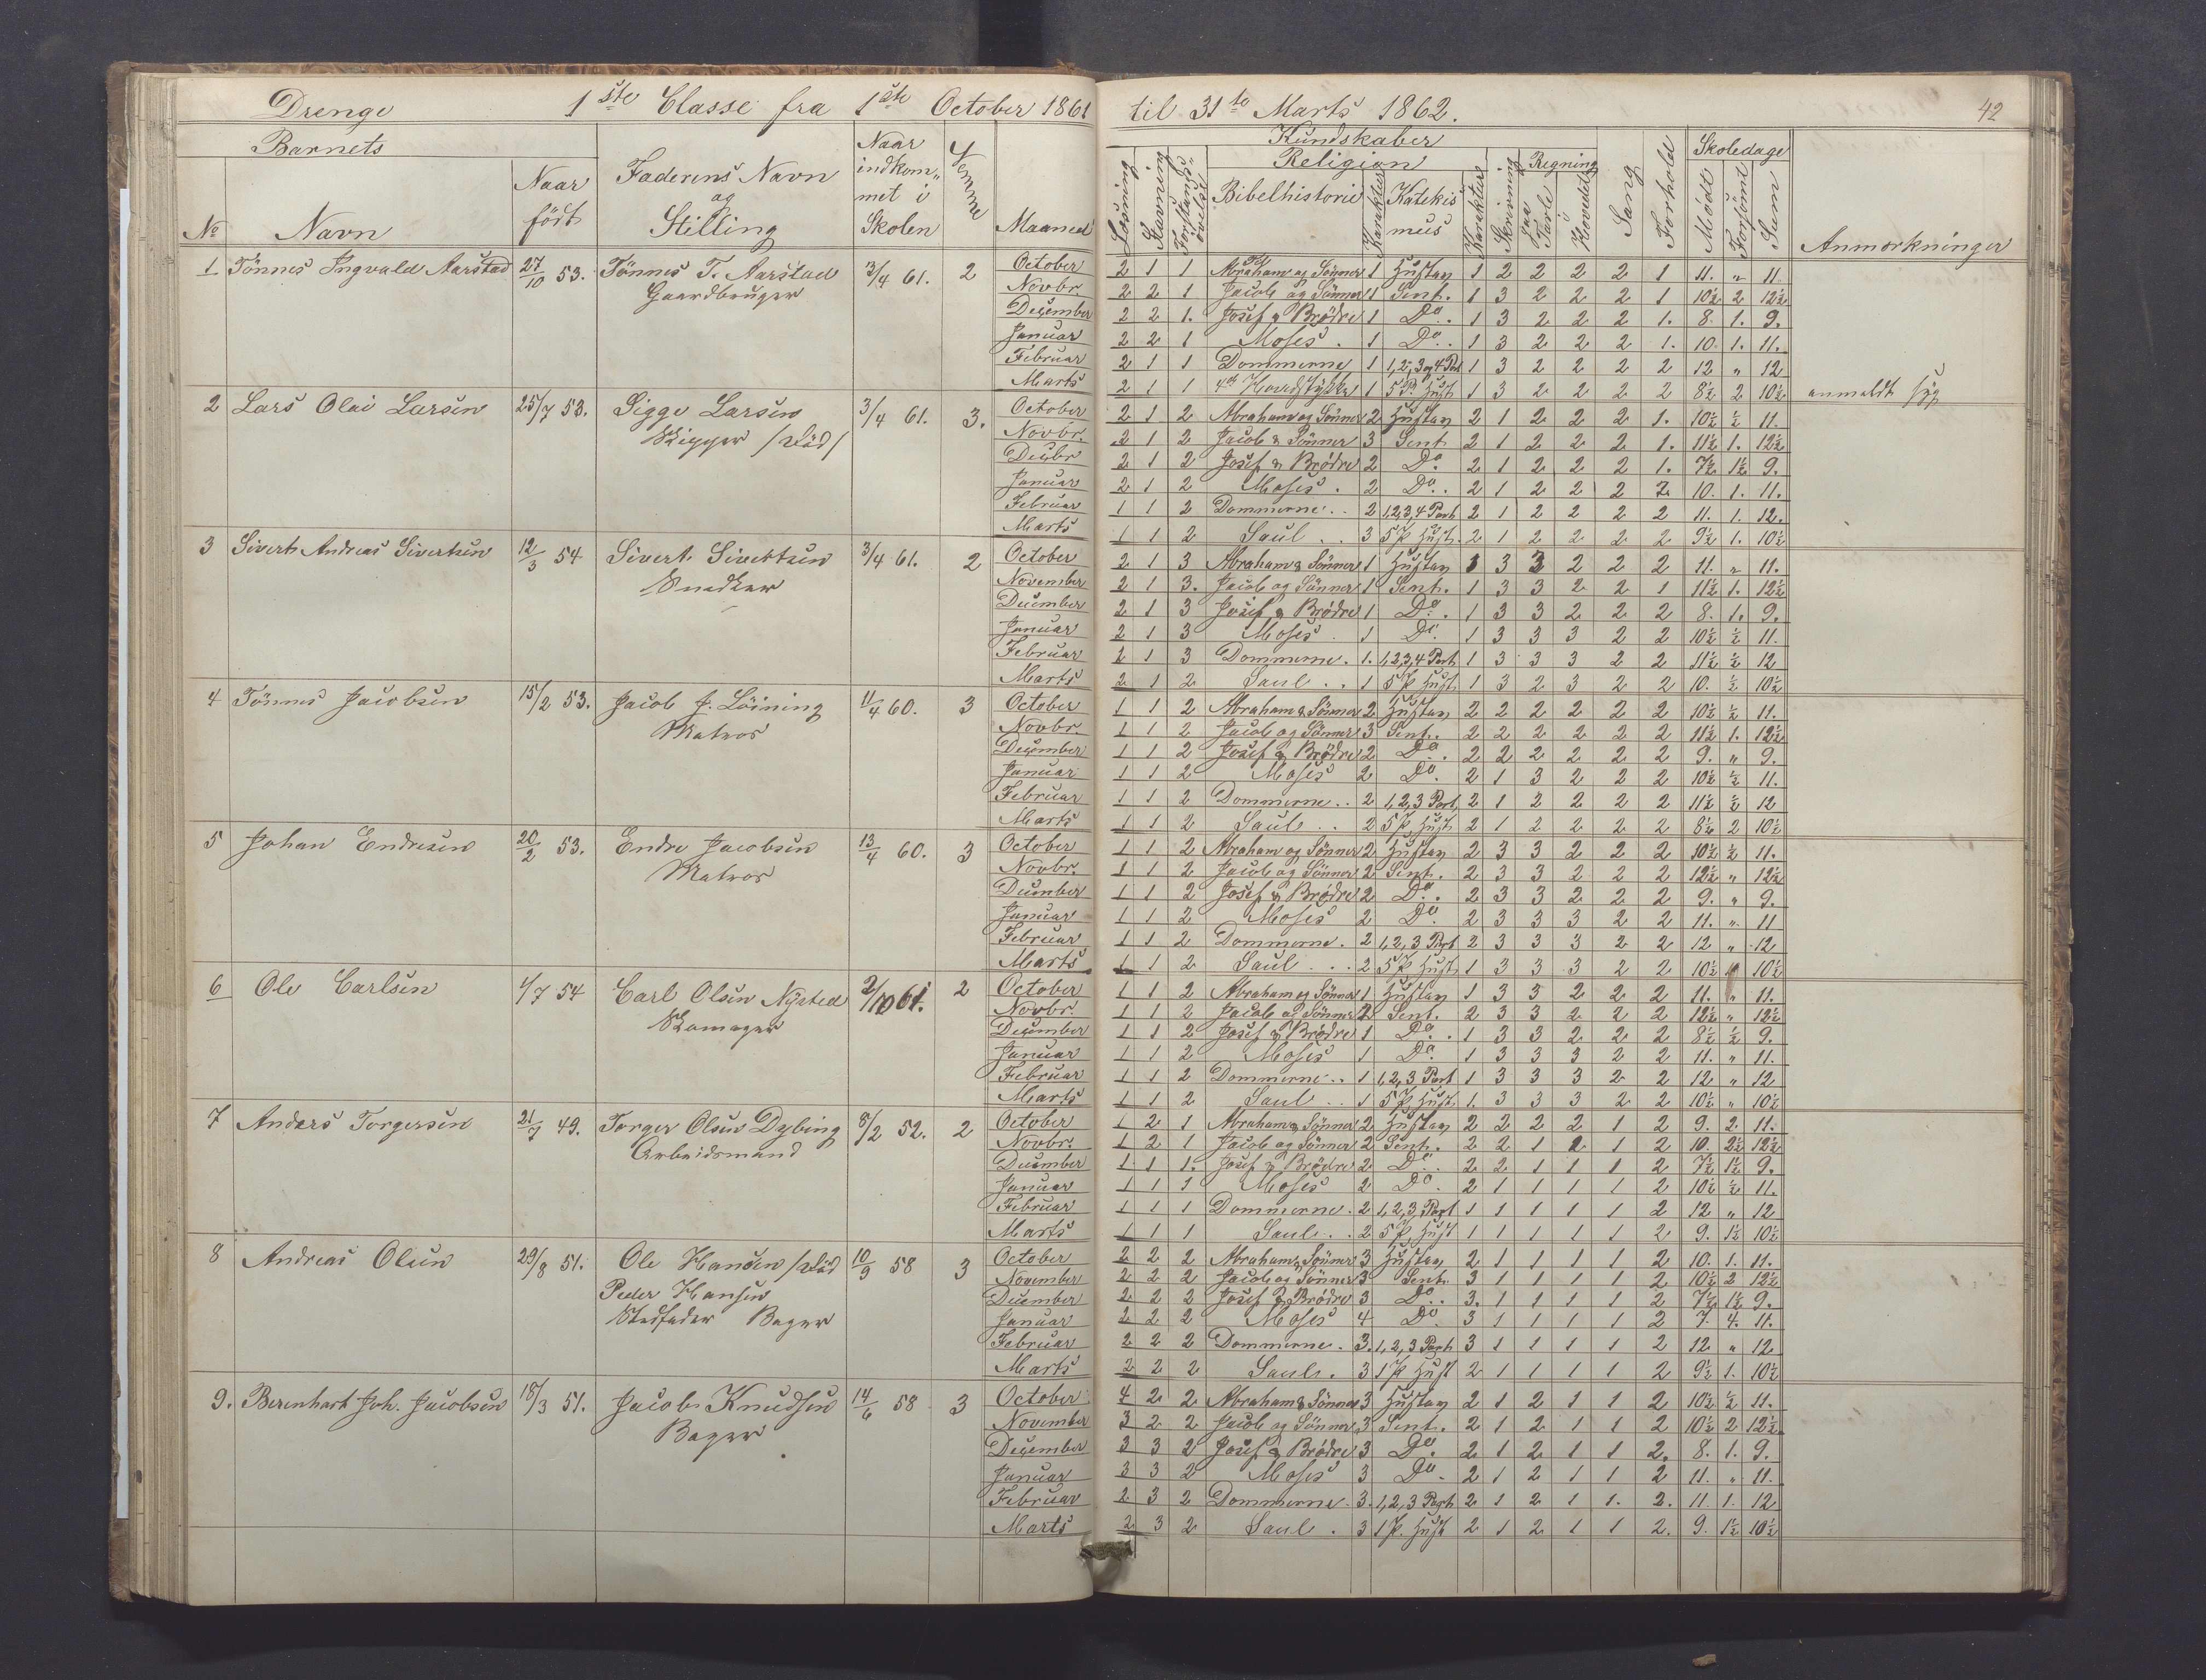 Drenge 1ste Classe fra 1ste October 1861 til 31te Marts 1862. 42
Barnets
No Navn Naar født Faderens Navn og Stilling Naar indkommet i Skolen Evne Maaned
Kundskaber
Religion Regning Skoledage
Læsning Stavning Forstandsøvelse Bibelhistorie Karakter Katekismus Karakter Skrivning paa Tavle i Hovedet Sang Forhold Mødt Forsømt Sum Anmærkninger
1 Tønnes Ingvald Aarstad 27/10 53. Tønnes T. Aarstad Gaardbruger 3/4 61. 2
October 2 1 1 Abraham og Sønner 1 1 2 2 2 2 1 11. " 11.
Novbr. 2 2 1 Jacob og Sønner 1 Sent. 1 3 2 2 2 1 10½ 2 12½
Dezember 2 2 1. Josef & Brødre 1 Do. 1 3 2 2 2 1. 8. 1. 9.
Januar 2 2 1 Moses. 1 Do. 1 3 2 2 2 1. 10. 1. 11.
Februar 2 1 1 Dommerne 1 1, 2, 3 og 4 Part 1 3 2 2 2 2 12 " 12
Marts 2 1 1 1 5 P. 1 3 2 2 2 2 8½ 2 10½ anmeldt
2 Lars Olai Larsen 25/7 53. Sigge Larsen (død) 3/4 61. 3.
October 2 1 2 Abraham og Sønner 2 2 1 2 2 2 1. 10½ ½ 11.
Novbr. 2 1 2 Jacob & Sønner 3 Sent 2 1 2 2 2 1. 11½ 1. 12½
Dezbr 2 1 2 Josef & Brødre 2 Do. 2 1 2 2 2 1. 7½ 1½ 9.
Januar 2 1 2 Moses. 2 Do. 2 1 2 2 2 2. 10. 1. 11.
Februar 1 1 2 Dommerne.. 2 1,2,3,4 Part 2 1 2 2 2 2 11. 1. 12.
Marts 1 1 2 Saul.. 3 5 P. 2 1 2 2 2 2 9½ 1. 10½
3 Sivert Andreas Sivertsen 12/3 54 Sivert Sivertsen Snedker 3/4 61. 2
October 2 1 3 Abraham & Sønner 1 1 3 3 2 2 2 11. " 11.
November 2 1 3. Jacob og Sønner 1 Sent. 1 3 3 2 2 1 11½ 1. 12½
December 2 1 3 Josef & Brødre 1 Do. 1 3 3 2 2 2 8. 1. 9.
Januar 2 1 3 Moses. 1 Do. 1 3 3 3 2 2 10½ ½ 11.
Februar 2 1 3 Dommerne. 1. 1,2,3,4 Part 1 3 3 3 2 2 11½ ½ 12
Marts 2 1 2 Saul.. 1 5 P. 1 3 2 3 2 2 10. ½ 10½
4 Tønnes Jacobsen 15/2 53. Jacob J. Løining Matros 11/4 60. 3
October 1 1 2 Abraham & Sønner 2 2 2 2 2 2 2 10½ ½ 11.
Novbr. 1 1 2 Jacob og Sønner 3 Sent. 2 2 2 2 2 2 11½ 1. 12½
Dezember 1 1 2 Josef & Brødre 2 Do. 2 2 2 2 2 2 9. " 9.
Januar 1 1 2 Moses 2 Do. 2 1 3 2 2 2 10½ ½ 11.
Februar 1 1 2 Dommerne.. 2 1,2,3 Part 2 1 2 2 2 2 11½ ½ 12
Marts 1 1 2 Saul.. 2 5 P. 2 1 2 2 2 2 8½ 2 10½
5 Johan Endresen 20/2 53. Endre Jacobsen Matros 13/4 60. 3
October 1 1 2 Abraham og Sønner 2 2 3 3 2 2 2 10½ ½ 11.
Novbr. 1 1 2 Jacob og Sønner 2 Sent. 2 3 3 2 2 2 12½ " 12½
December 1 1 2 Josef & Brødre 2 Do. 2 3 3 2 2 2 9. " 9.
Januar 1 1 2 Moses 2 Do. 2 3 3 3 2 2 11. " 11
Februar 1 1 2 Dommerne. 2 1,2,3 Part 2 3 3 3 2 2 12 " 12
Marts 1 1 2 Saul... 2 5 P. 1 3 3 3 2 2 10½ 10½
6 Ole Carlsen 1/7 54 Carl Olsen Nysted Skomager 2/10 61. 2
October 1 1 2 Abraham og Sønner 1 1 3 3 2 2 2 11. " 11.
Novbr. 1 1 2 Jacob og Sønner 2 Sent. 2 3 3 2 2 2 12½ " 12½
Dezember 1 1 2 Josef & Brødre 1 Do. 1 3 3 2 2 2 8½ ½ 9.
Januar 1 1 2 Moses 1 Do. 1 3 3 3 2 2 11. " 11.
Februar 1 1 2 Dommerne.. 1 1,2,3 Part 1 3 3 3 2 2 12 " 12
Marts 1 1 2 Saul.. 1 5 P. 1. 3 3 3 2 2 10½ " 10½
7 Anders Torgersen 21/7 49. Torger Olsen Dybing Arbeidsmand 8/2 52. 2
October 1 2 1 Abraham & Sønner 2 2 2 2 2 1 2 9. 2 11.
Novbr. 1 2 1 Jacob og Sønner 2 Sent. 2 2 1 2 1 2 10. 2½ 12½
December 1 1 1. Josef & Brødre 2 Do. 2 2 1 1 1 2 7½ 1½ 9.
Januar 1 1 1 Moses 2 Do. 2 1 1 1 1 2 10½ ½ 11.
Februar 1 1 1 Dommerne. 2 1,2,3 Part 1 1 1 1 1 2 12 " 12
Marts 1 1 1 Saul.. 2 5 P. 1 1 1 1 1 2 9. 1½ 10½
8 Andreas Olsen 29/8 51. Ole Hansen /død Peder Hansen Stedfader Bager 10/9 58 3
October 2 2 2 Abraham & Sønner 3 2 1 1 1 1 2 10. 1. 11.
November 2 2 2 Jacob og Sønner 3 Sent. 3 1 1 1 1 2 10½ 2 12½
December 2 2 2 Josef & Brødre 3 Do.. 3. 1 1 1 1 2 7½ 1½ 9.
Januar 2 2 2 Moses 4 Do. 3 1 1 1 1 2 7. 4. 11.
Februar 2 2 2 Dommerne. 3. 1,2,3 Part 3 1 1 1 1 2 12 " 12
Marts 2 2 2 Saul. 3 1 P. 2 1 1 1 1 2 9½ 1. 10½
9. Berenhart Joh. Jacobsen 18/3 51. Jacob Knudsen Bager 14/6 58 3
October 4 2 2 Abraham & Sønner 3 2 1 2 1 1 2 10½ ½ 11.
November 3 2 2 Jacob og Sønner 3 Sent. 2 1 2 1 1 2 10½ 2 12½
Dezember 3 3 2 Josef & Brødre 3 Do. 2 1 2 1 1 2. 8. 1. 9.
Januar 3 3 2 Moses 3 Do. 2 1 2 1 1 2 11. " 11.
Februar 2 3 2 Dommerne. 3. 1,2,3 Part 2 1 2 1 1. 2. 11. 1. 12
Marts 2 3 2 Saul. 3 1 P. 2 1 2 1 1 2. 9. 1½ 10½